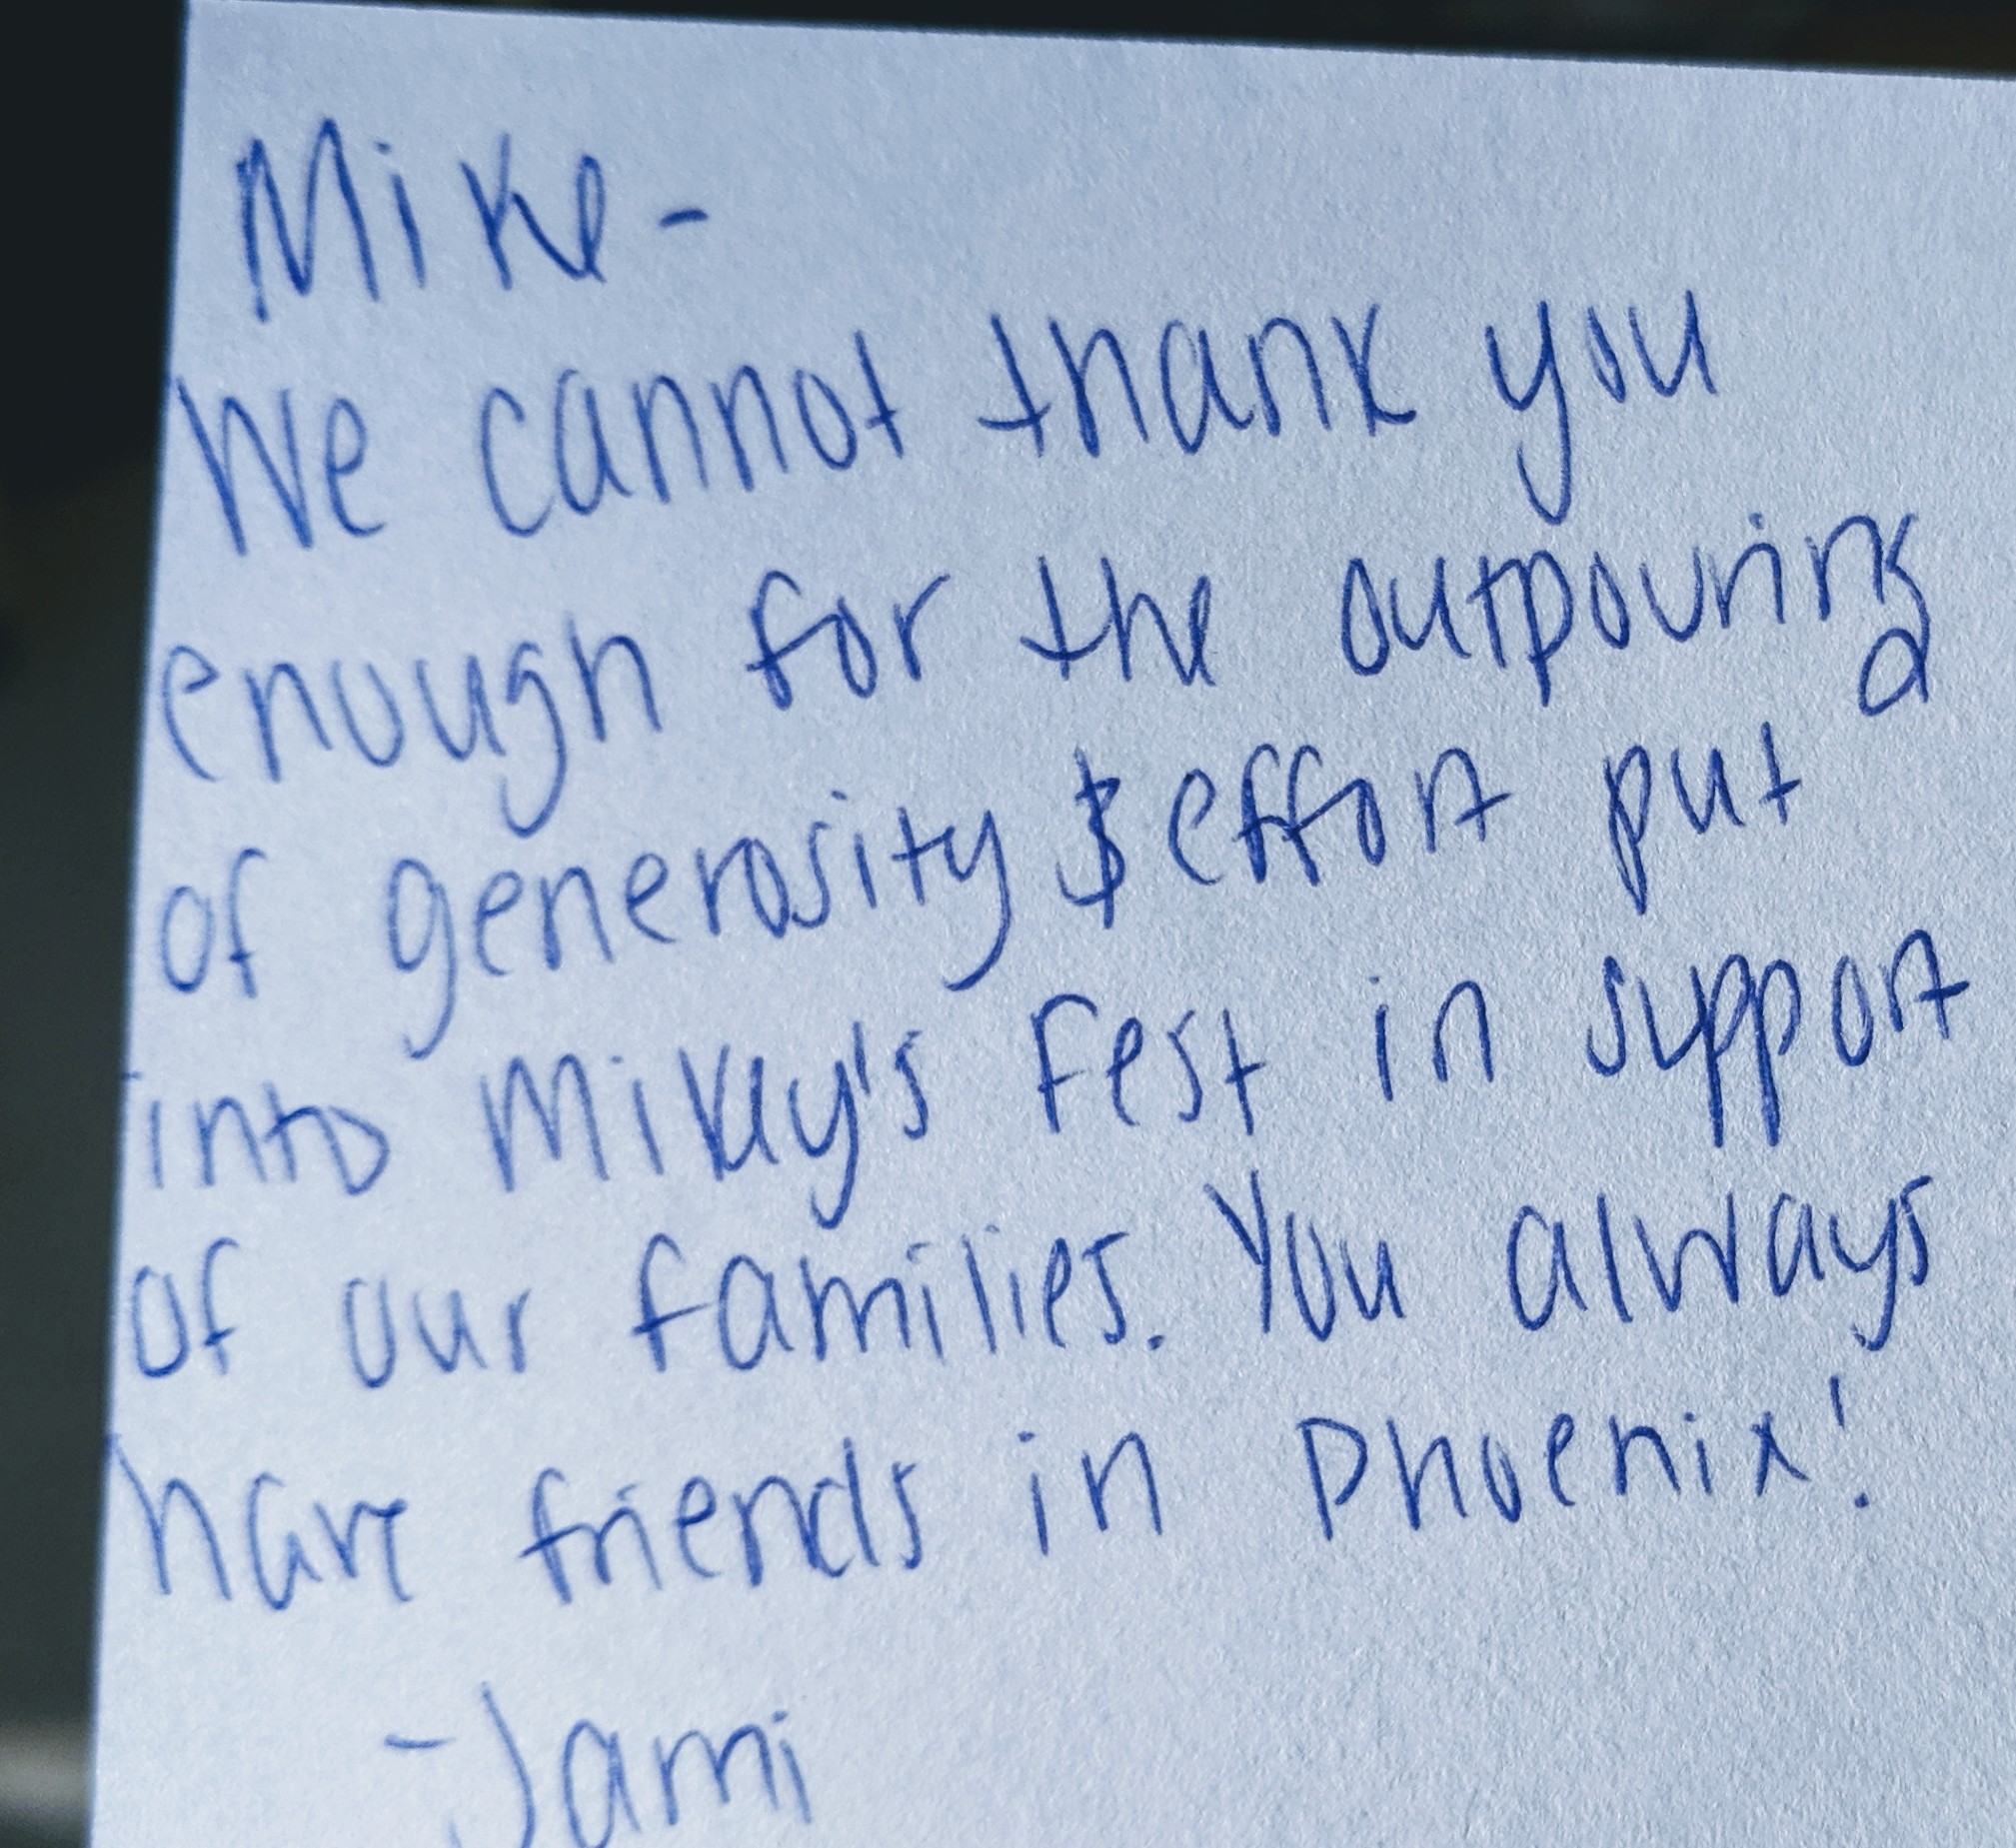 Mike-
We cannot thank you
enough for the outpouring
of generosity & effort put
into Mikey's Fest in support
of our families. You always
have friends in Phoenix!
-Jami